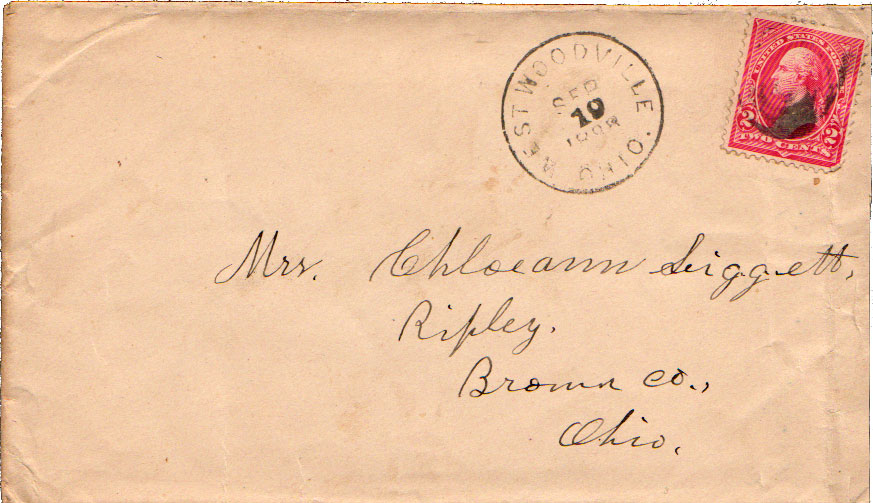 WEST WOODVILLE. OHIO.
SEP
19
1898
UNITED STATES POSTAGE
2 2
TWO CENTS
Mrs. Chloeann Liggett,
Ripley.
Brown Co.,
Ohio.